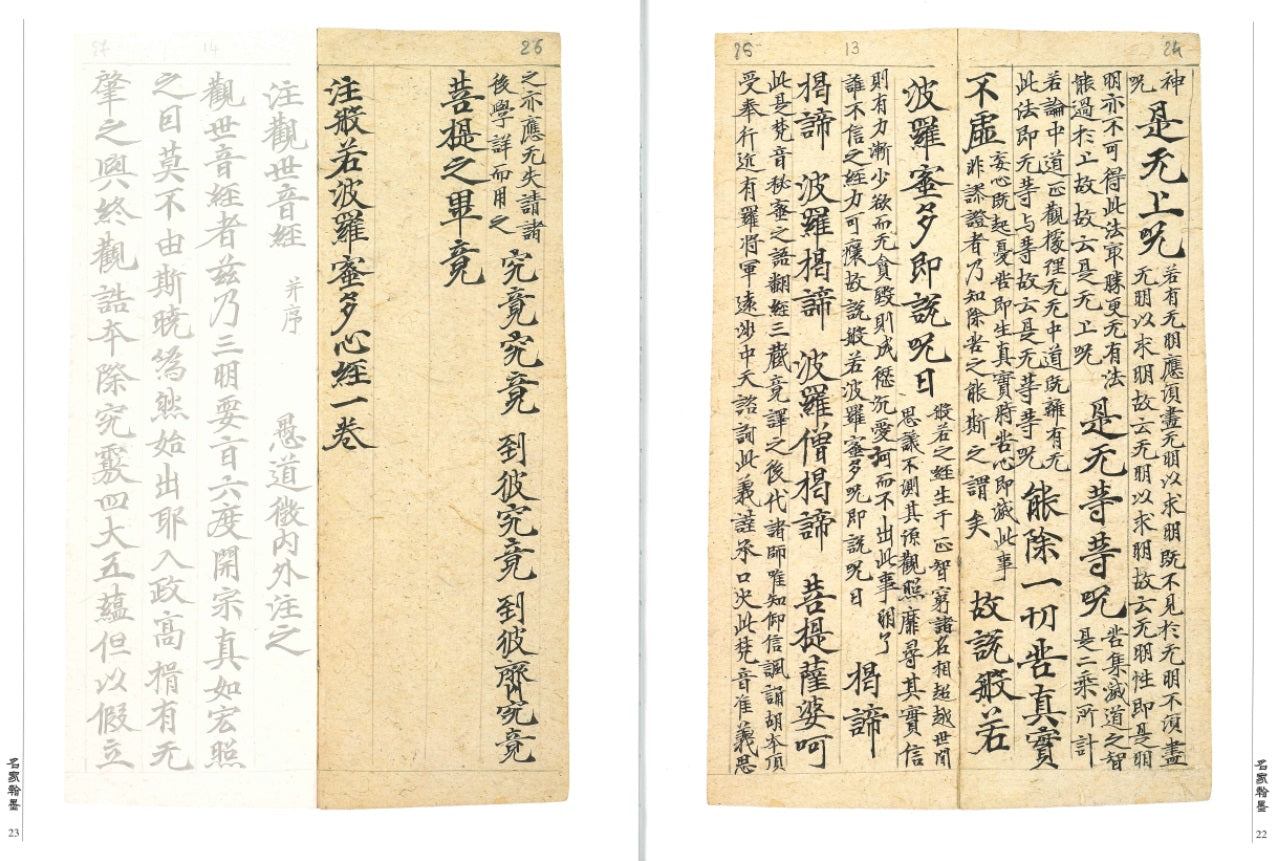 24
13
25
神
呪
是无上呪
若有无明應須盡无明以求明既不見於无明不須盡
无明以求明故云无明以求明故云无明性即是明
明亦不可得此法最勝更无有法
能過於上故故云是无上呪
是无等等呪
苦集滅道之智
是二乘所計
若論中道正觀據理无无中道既離有无
此法即无等与等故云是无等等呪
能除一切苦真實
不虛
妄心既起憂苦即生真實時苦心即滅此事
非深證者乃知除苦之能斯之謂矣
故說般若
波羅蜜多即說呪曰
般若之經生于正智窮諸名相超越世間
思議不測其源觀照靡尋其實信
則有力漸少欲而无貪毀則成愆沉愛河而不出此事明了
誰不信之經力可穰故說般若波羅蜜多呪即說呪曰
揭諦
揭諦 波羅揭諦 波羅僧揭諦 菩提薩婆呵
此是梵音秘蜜之語翻經三藏竟譯之後代諸師唯知仰信諷誦胡本頂
受奉行進有羅將軍遠涉中天諮詢此義謹承口决此梵音准義思
名家翰墨
22
26
14
27
之亦應无失請諸
後學詳而用之
究竟究竟 到彼究竟 到彼齊究竟
菩提之畢竟
注般若波羅蜜多心經一卷
注觀世音經 并序 愚道徵内外注之
觀世音經者茲乃三明要旨六度開宗真如宏照
之目莫不由斯曉為然始出耶入政高揖有无
肇之興終觀誥本際究竅四大五蘊但以假立
名家翰墨
23